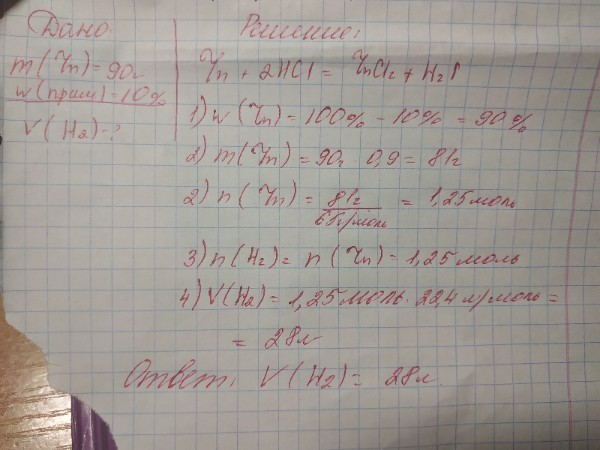 Дано:
m(Zn)=90г
w(прим)=10%
V(H2)-?
Решение:
Zn + 2HCl = ZnCl2 + H2↑
1) w(Zn) = 100% - 10% = 90%
2) m(Zn) = 90г · 0,9 = 81г
2) n(Zn) = 81г / 65г/моль = 1,25моль
3) n(H2) = n(Zn) = 1,25моль
4) V(H2) = 1,25моль · 22,4л/моль =
= 28л
Ответ: V(H2) = 28л.